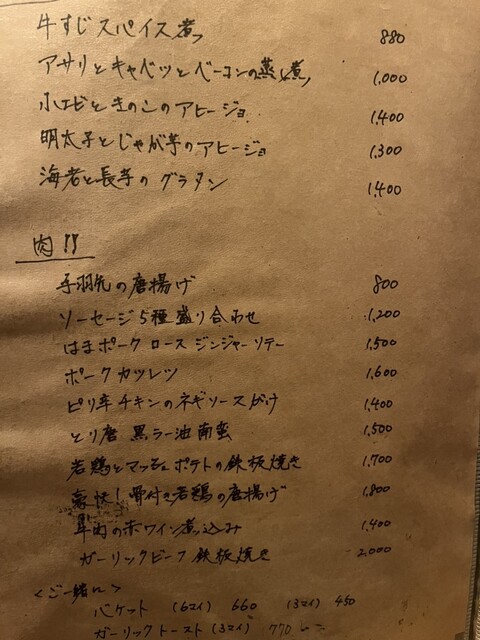 牛すじスパイス煮 880
アサリとキャベツとベーコンの蒸し煮 1,000
小エビときのこのアヒージョ 1,400
明太子とじゃが芋のアヒージョ 1,300
海老と長芋のグラタン 1,400
肉!!
手羽先の唐揚げ 800
ソーセージ5種盛り合わせ 1,200
はまポーク ロース ジンジャーソテー 1,500
ポークカツレツ 1,600
ピリ辛チキンのネギソースがけ 1,400
とり唐 黒ラー油南蛮 1,500
若鶏とマッシュポテトの鉄板焼き 1,700
豪快!骨付き若鶏の唐揚げ 1,800
牛肉の赤ワイン煮込み 1,400
ガーリックビーフ鉄板焼き 2,000
<ご一緒に>
バケット (6マイ) 660 (3マイ) 450
ガーリックトースト (3マイ) 770